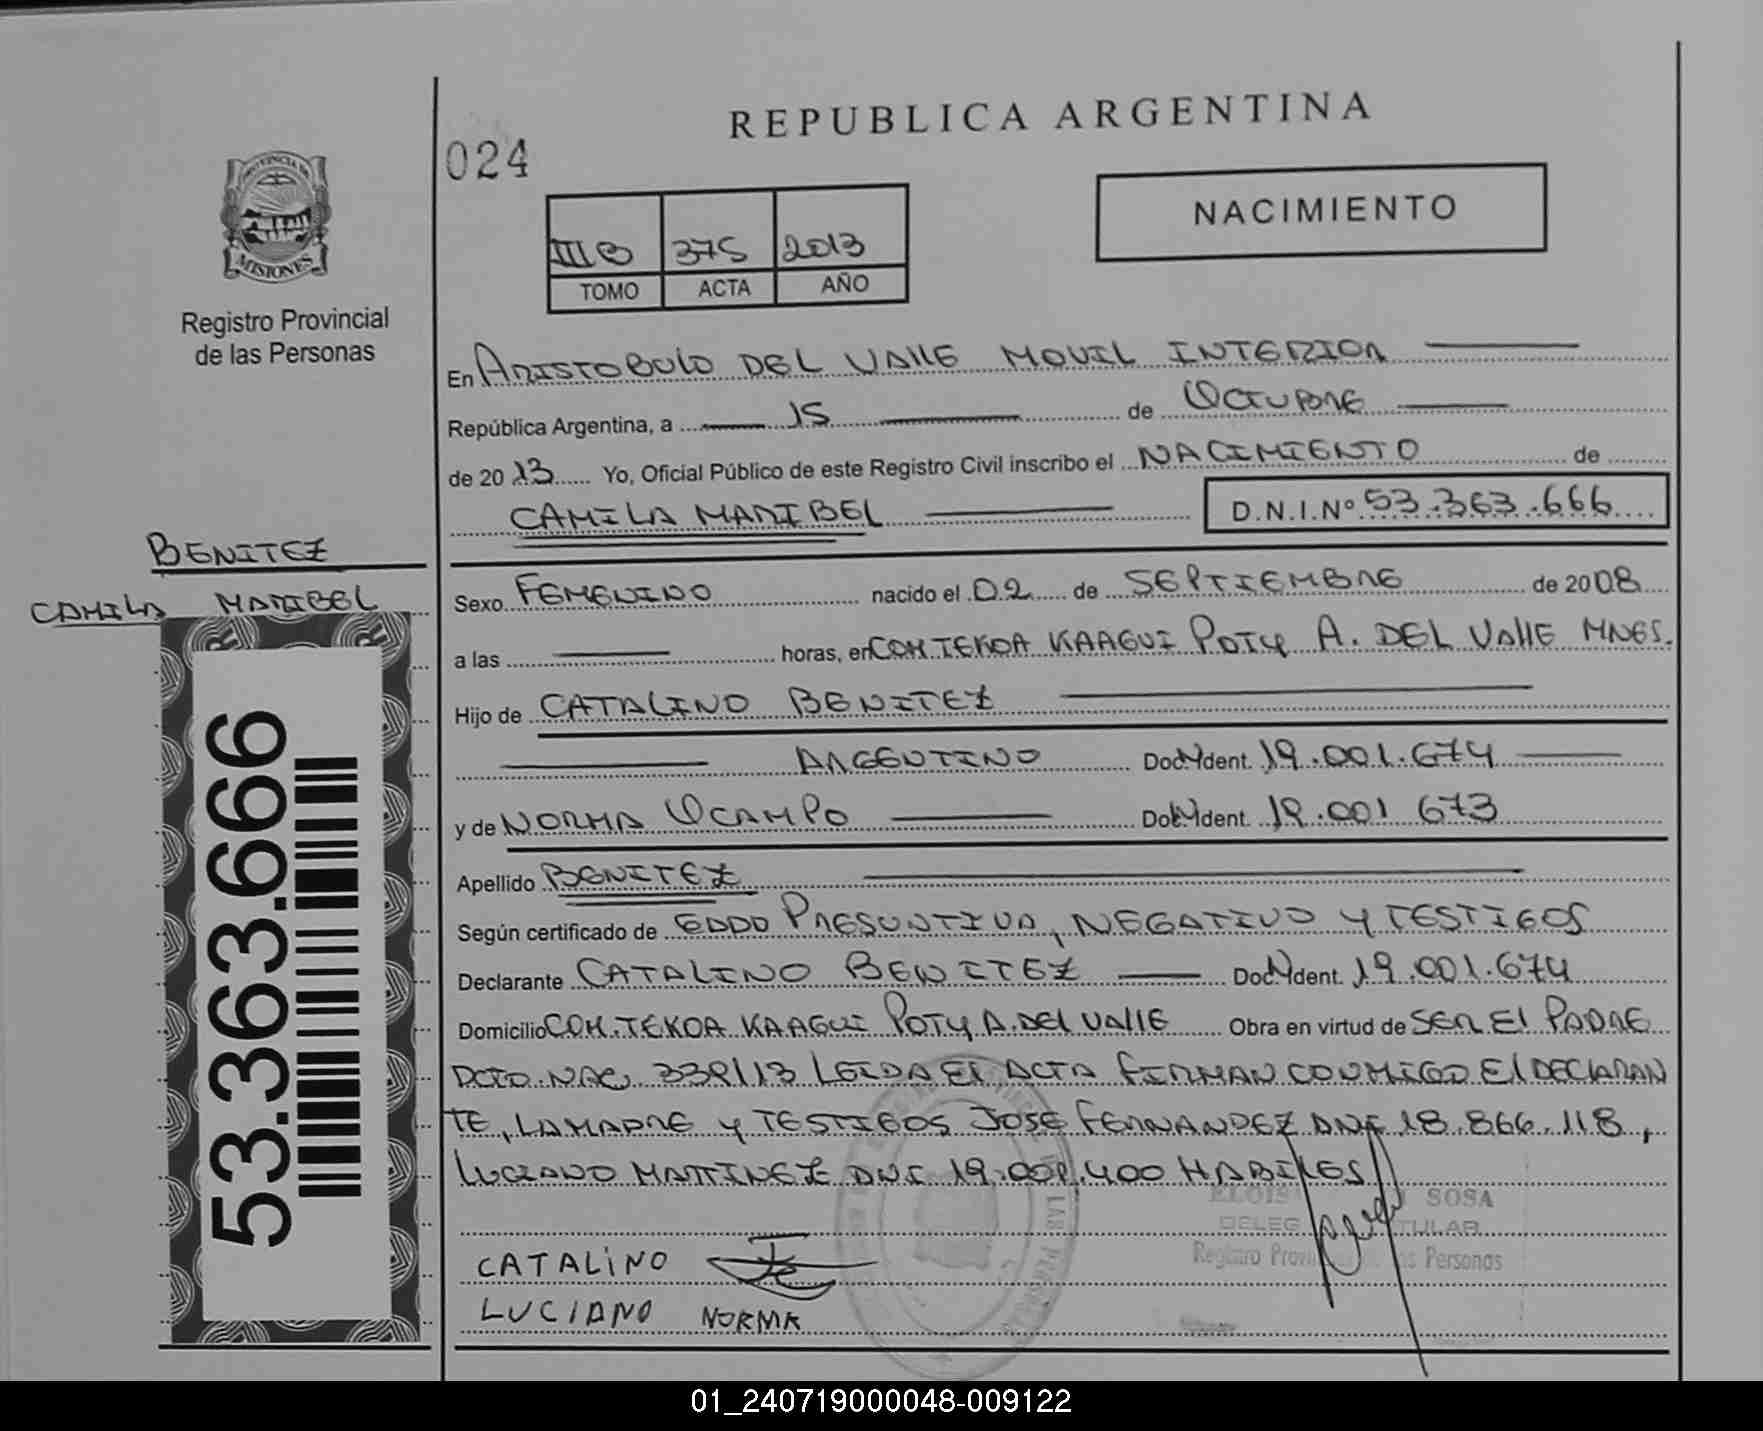 REPUBLICA ARGENTINA
024
NACIMIENTO
PROVINCIA DE
MISIONES
Registro Provincial
de las Personas
III B 375 2013
TOMO ACTA AÑO
En ARISTOBULO DEL VALLE MOVIL INTERIOR
República Argentina, a 15 de OCTUBRE
de 2013 Yo, Oficial Público de este Registro Civil inscribo el NACIMIENTO de
CAMILA MARIBEL D.N.I.Nº 53.363.666
BENITEZ
CAMILA MARIBEL
53.363.666
Sexo FEMENINO nacido el 02 de SEPTIEMBRE de 2008
a las horas, en COM.TEKOA KAAGUI POTY A. DEL VALLE MNES.
Hijo de CATALINO BENITEZ
ARGENTINO Doc. Ident. 19.001.674
y de NORMA OCAMPO Doc. Ident. 19.001 673
Apellido BENITEZ
Según certificado de EDAD PRESUNTIVA, NEGATIVO Y TESTIGOS
Declarante CATALINO BENITEZ Doc. Ident. 19.001.674
Domicilio COM.TEKOA KAAGUI POTY A. DEL VALLE Obra en virtud de SER EL PADRE
DCTO. NAC. 339/13 LEIDA EL ACTA FIRMAN CONMIGO EL DECLARAN
TE, LA MADRE Y TESTIGOS JOSE FERNANDEZ DNI 18.866.118,
LUCIANO MARTINEZ DNI 19.001.400 HABILES
SOSA
DELEG TITULAR
Registro Provin las Personas
CATALINO
LUCIANO NORMA
01_240719000048-009122